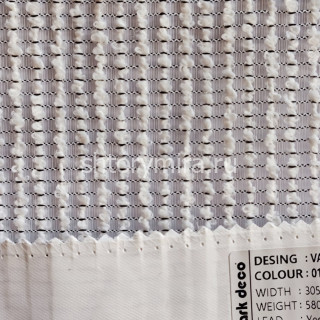 shtorymira.ru
DESING : VA
COLOUR : 01
WIDTH : 305
WEIGHT : 580
LEAD : Yes